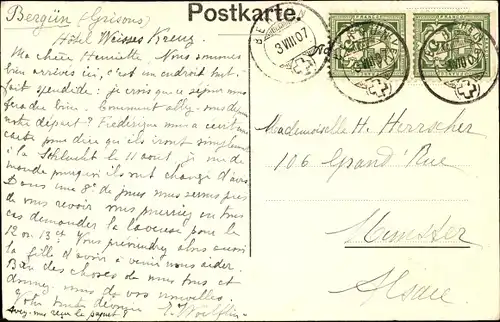 Bergün (Grisons)
Postkarte.
Hôtel Weisses Kreuz
Ma chère Henriette, Nous sommes
bien arrivés ici, c'est un endroit tout-à-
fait splendide; je crois que ce séjour nous
fera du bien. Comment allez-vous depuis
notre départ? Frédérique nous a écrit une
carte pour dire qu'ils iront simplement
à la Schlucht le 11 août. Je me
demande pourquoi ils ont changé d'avis
Dans une 8e de jours nous serons près
de vous revoir vous pourriez en tous
cas demander la laveuse pour le
12 ou 13 ct. Vous préviendrez alors aussi
la fille d'avoir à venir nous aider.
Bien des choses de nous tous et
donnez-nous de vos nouvelles.
Votre toute dévouée
E. Woelflin
Avez-vous reçu le paquet?
3 VIII 07
BERGÜN
FRANCO
Mademoiselle H. Herrscher
106 Grand' Rue
Munster
Alsace